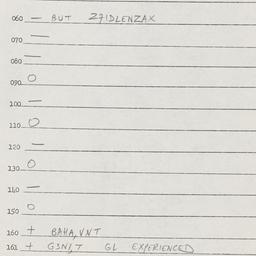 060 — BUT Z7IDLENZAX
070 —
080 —
090 O
100 —
110 O
120 —
130 O
140 —
150 O
160 + BAHA, VNT
161 + GL EXPERIENCED